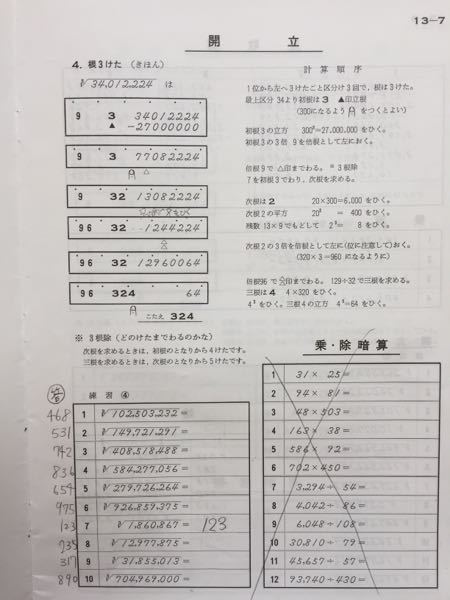 13-7
開 立
4. 根3けた (きほん)
∛34,012,224 は
9 3 34012224
▲ -27000000
9 3 77082224
△
9 32 13082224
96 32 -1244224
96 32 12960064
96 324 64
こたえ 324
計 算 順 序
1位から左へ3けたごと区分け3回で、根は3けた。
最上区分 34より初根は3 ▲印立根
(300になるよう をつくとよい)
初根3の立方 300³=27.000.000 をひく。
初根3の3倍 9を倍根として左におく。
倍根9で △印までわる。 ※ 3根除
7を初根3でわり、次根を求める。
次根は2 20×300=6.000 をひく。
次根2の平方 20² = 400 をひく。
残数 13×9でもどして 2³= 8 をひく。
次根2の3倍を倍根として左に(位に注意して)おく。
(320×3=960 になるように)
倍根96で 印までわる。129÷32で三根を求める。
三根は4 4×320 をひく。
4²をひく。三根4の立方 4³=64 をひく。
※ 3根除 (どのけたまでわるのかな)
次根を求めるときは、初根のとなりから4けたです。
三根を求めるときは、次根のとなりから5けたです。
答
468
531
742
836
654
975
123
235
317
890
練 習 ④
1 ∛102,503,232 =
2 ∛149,721,291 =
3 ∛408,518,488 =
4 ∛584,277,056 =
5 ∛279,726,264 =
6 ∛926,859,375 =
7 ∛1,860,867 = 123
8 ∛12,977,875 =
9 ∛31,855,013 =
10 ∛704,969,000 =
乗・除暗算
1 31 × 25 =
2 94 × 81 =
3 48 × 503 =
4 163 × 38 =
5 586 × 92 =
6 702 × 450 =
7 3,294 ÷ 54 =
8 4,042 ÷ 86 =
9 6,048 ÷ 108 =
10 30,810 ÷ 79 =
11 45,657 ÷ 57 =
12 93,740 ÷ 430 =